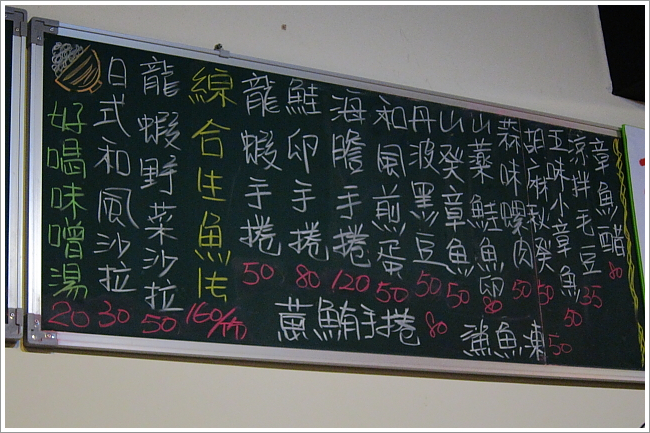 章魚醋 80
涼拌毛豆 35
五味小章魚 50
胡麻秋葵 50
蒜味螺肉 50
山藥鮭魚卵 80
山葵章魚 50
丹波黑豆 50
和風煎蛋 50
海膽手捲 120
鮭卵手捲 80
龍蝦手捲 50
綜合生魚片 160/份
龍蝦野菜沙拉 50
日式和風沙拉 30
好喝味噌湯 20
鯊魚凍 50
蔥鮪手捲 80